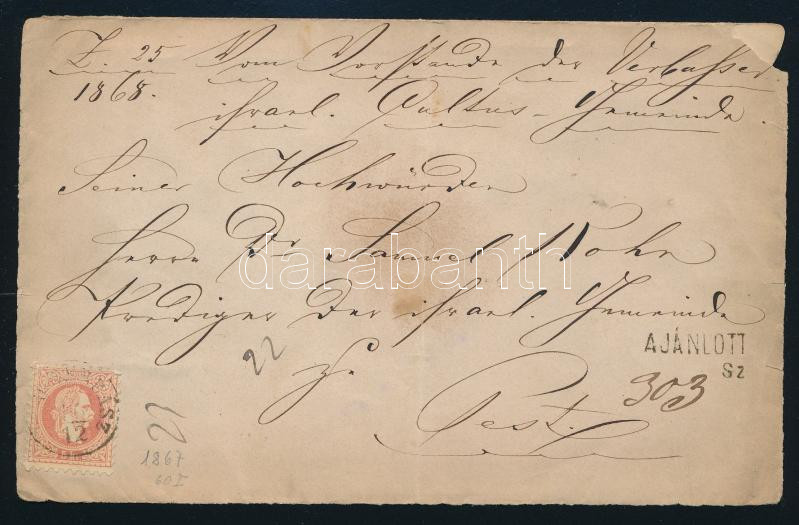 Z. 25 Vom Vorstande der Verbasser
1868.
israel. Cultus-Gemeinde.
Seiner Hochwürden
Herrn Dr Samuel Kohn
Prediger der israel. Gemeinde
z.
Pest.
22
AJÁNLOTT
Sz
303
12
1867
60 I
darabanth